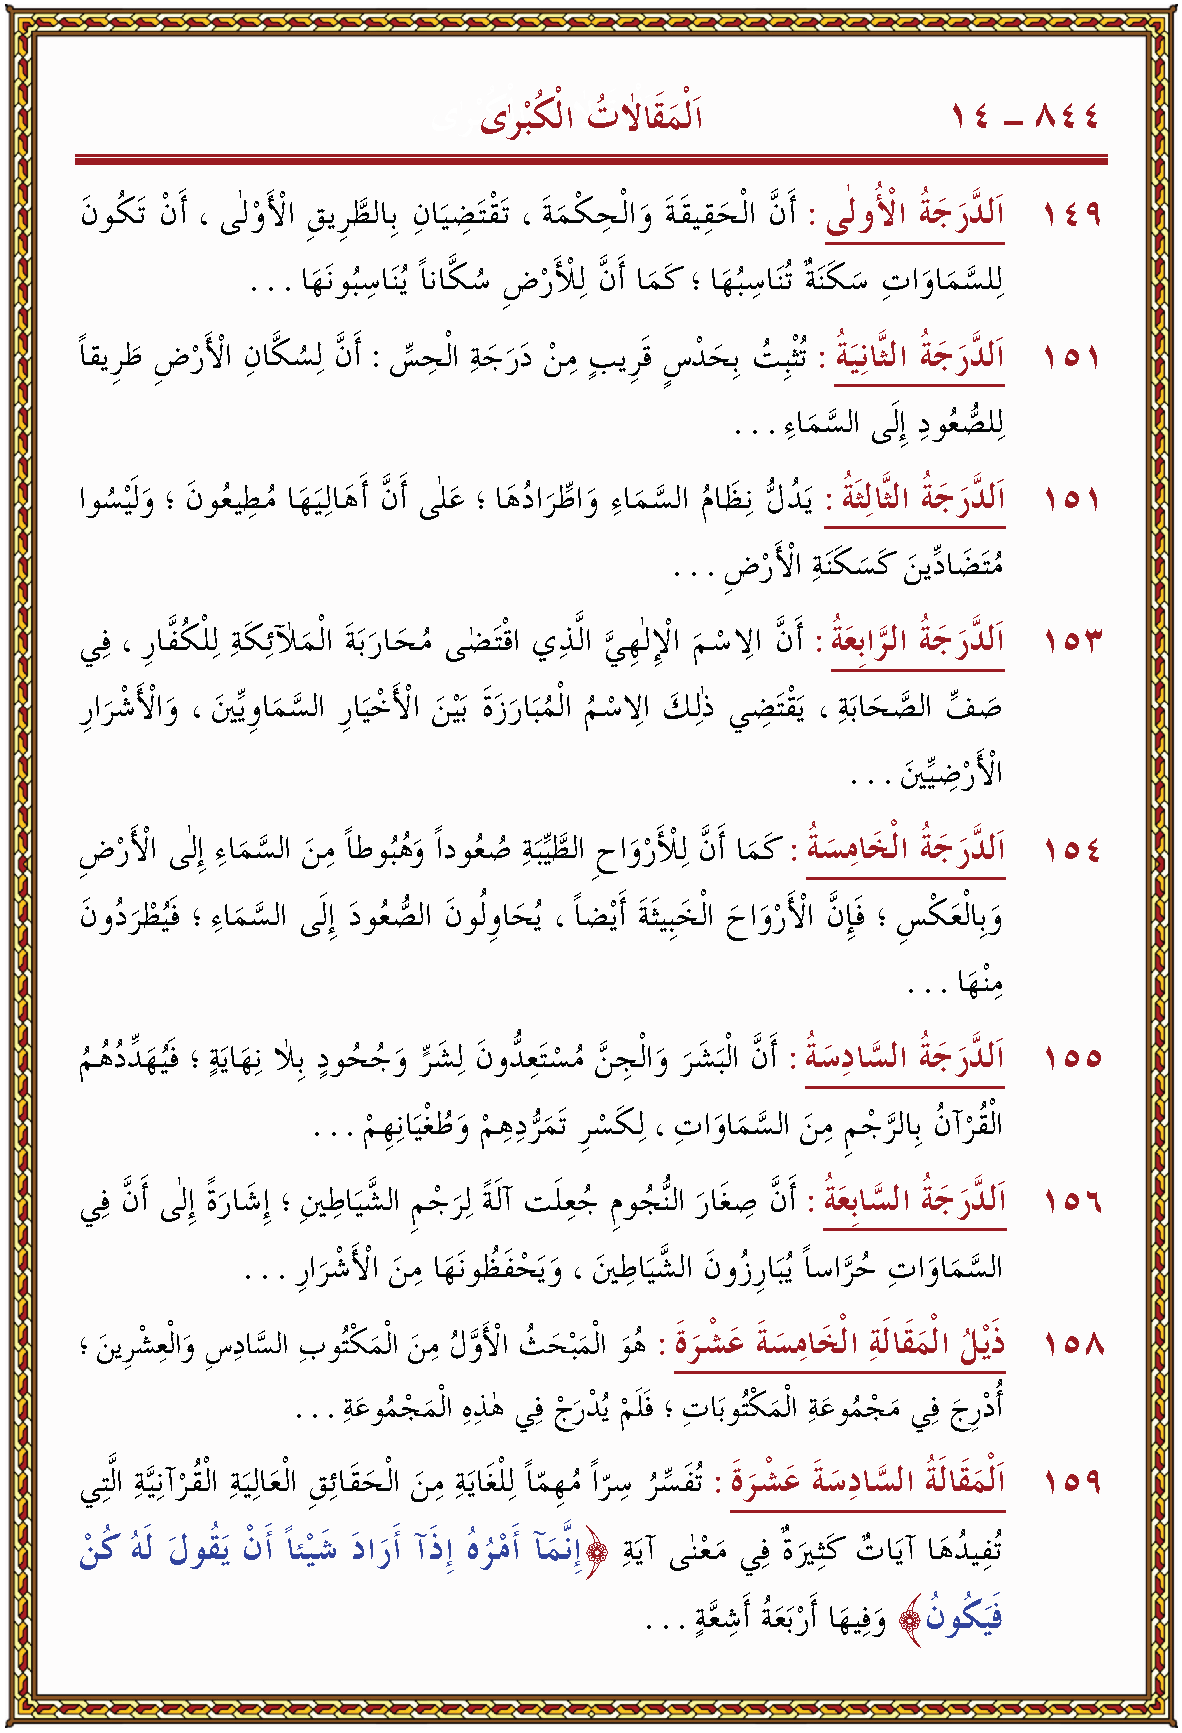 ٨٤٤ – ١٤ اَلْمَقَالاٰتُ الْكُبْرٰى
١٤٩ اَلدَّرَجَةُ الْأُولٰى : أَنَّ الْحَقِيقَةَ وَالْحِكْمَةَ ، تَقْتَضِيَانِ بِالطَّرِيقِ الْأَوْلٰى ، أَنْ تَكُونَ
لِلسَّمَاوَاتِ سَكَنَةٌ تُنَاسِبُهَا ؛ كَمَا أَنَّ لِلْأَرْضِ سُكَّاناً يُنَاسِبُونَهَا . . .
١٥١ اَلدَّرَجَةُ الثَّانِيَةُ : تُثْبِتُ بِحَدْسٍ قَرِيبٍ مِنْ دَرَجَةِ الْحِسِّ : أَنَّ لِسُكَّانِ الْأَرْضِ طَرِيقاً
لِلصُّعُودِ إِلَى السَّمَاءِ . . .
١٥١ اَلدَّرَجَةُ الثَّالِثَةُ : يَدُلُّ نِظَامُ السَّمَاءِ وَاطِّرَادُهَا ؛ عَلٰى أَنَّ أَهَالِيَهَا مُطِيعُونَ ؛ وَلَيْسُوا
مُتَضَادِّينَ كَسَكَنَةِ الْأَرْضِ . . .
١٥٣ اَلدَّرَجَةُ الرَّابِعَةُ : أَنَّ الِاسْمَ الْإِلٰهِيَّ الَّذِي اقْتَضٰى مُحَارَبَةَ الْمَلاٰۤئِكَةِ لِلْكُفَّارِ ، فِي
صَفِّ الصَّحَابَةِ ، يَقْتَضِي ذٰلِكَ الِاسْمُ الْمُبَارَزَةَ بَيْنَ الْأَخْيَارِ السَّمَاوِيِّينَ ، وَالْأَشْرَارِ
الْأَرْضِيِّينَ . . .
١٥٤ اَلدَّرَجَةُ الْخَامِسَةُ : كَمَا أَنَّ لِلْأَرْوَاحِ الطَّيِّبَةِ صُعُوداً وَهُبُوطاً مِنَ السَّمَاءِ إِلٰى الْأَرْضِ
وَبِالْعَكْسِ ؛ فَإِنَّ الْأَرْوَاحَ الْخَبِيثَةَ أَيْضاً ، يُحَاوِلُونَ الصُّعُودَ إِلَى السَّمَاءِ ؛ فَيُطْرَدُونَ
مِنْهَا . . .
١٥٥ اَلدَّرَجَةُ السَّادِسَةُ : أَنَّ الْبَشَرَ وَالْجِنَّ مُسْتَعِدُّونَ لِشَرٍّ وَجُحُودٍ بِلاٰ نِهَايَةٍ ؛ فَيُهَدِّدُهُمُ
الْقُرْآنُ بِالرَّجْمِ مِنَ السَّمَاوَاتِ ، لِكَسْرِ تَمَرُّدِهِمْ وَطُغْيَانِهِمْ . . .
١٥٦ اَلدَّرَجَةُ السَّابِعَةُ : أَنَّ صِغَارَ النُّجُومِ جُعِلَتْ آلَةً لِرَجْمِ الشَّيَاطِينِ ؛ إِشَارَةً إِلٰى أَنَّ فِي
السَّمَاوَاتِ حُرَّاساً يُبَارِزُونَ الشَّيَاطِينَ ، وَيَحْفَظُونَهَا مِنَ الْأَشْرَارِ . . .
١٥٨ ذَيْلُ الْمَقَالَةِ الْخَامِسَةَ عَشْرَةَ : هُوَ الْمَبْحَثُ الْأَوَّلُ مِنَ الْمَكْتُوبِ السَّادِسِ وَالْعِشْرِينَ ؛
أُدْرِجَ فِي مَجْمُوعَةِ الْمَكْتُوبَاتِ ؛ فَلَمْ يُدْرَجْ فِي هٰذِهِ الْمَجْمُوعَةِ . . .
١٥٩ اَلْمَقَالَةُ السَّادِسَةَ عَشْرَةَ : تُفَسِّرُ سِرّاً مُهِمّاً لِلْغَايَةِ مِنَ الْحَقَائِقِ الْعَالِيَةِ الْقُرْآنِيَّةِ الَّتِي
تُفِيدُهَا آيَاتٌ كَثِيرَةٌ فِي مَعْنٰى آيَةِ ﴿إِنَّمَآ أَمْرُهُ إِذَآ أَرَادَ شَيْئاً أَنْ يَقُولَ لَهُ كُنْ
فَيَكُونُ﴾ وَفِيهَا أَرْبَعَةُ أَشِعَّةٍ . . .